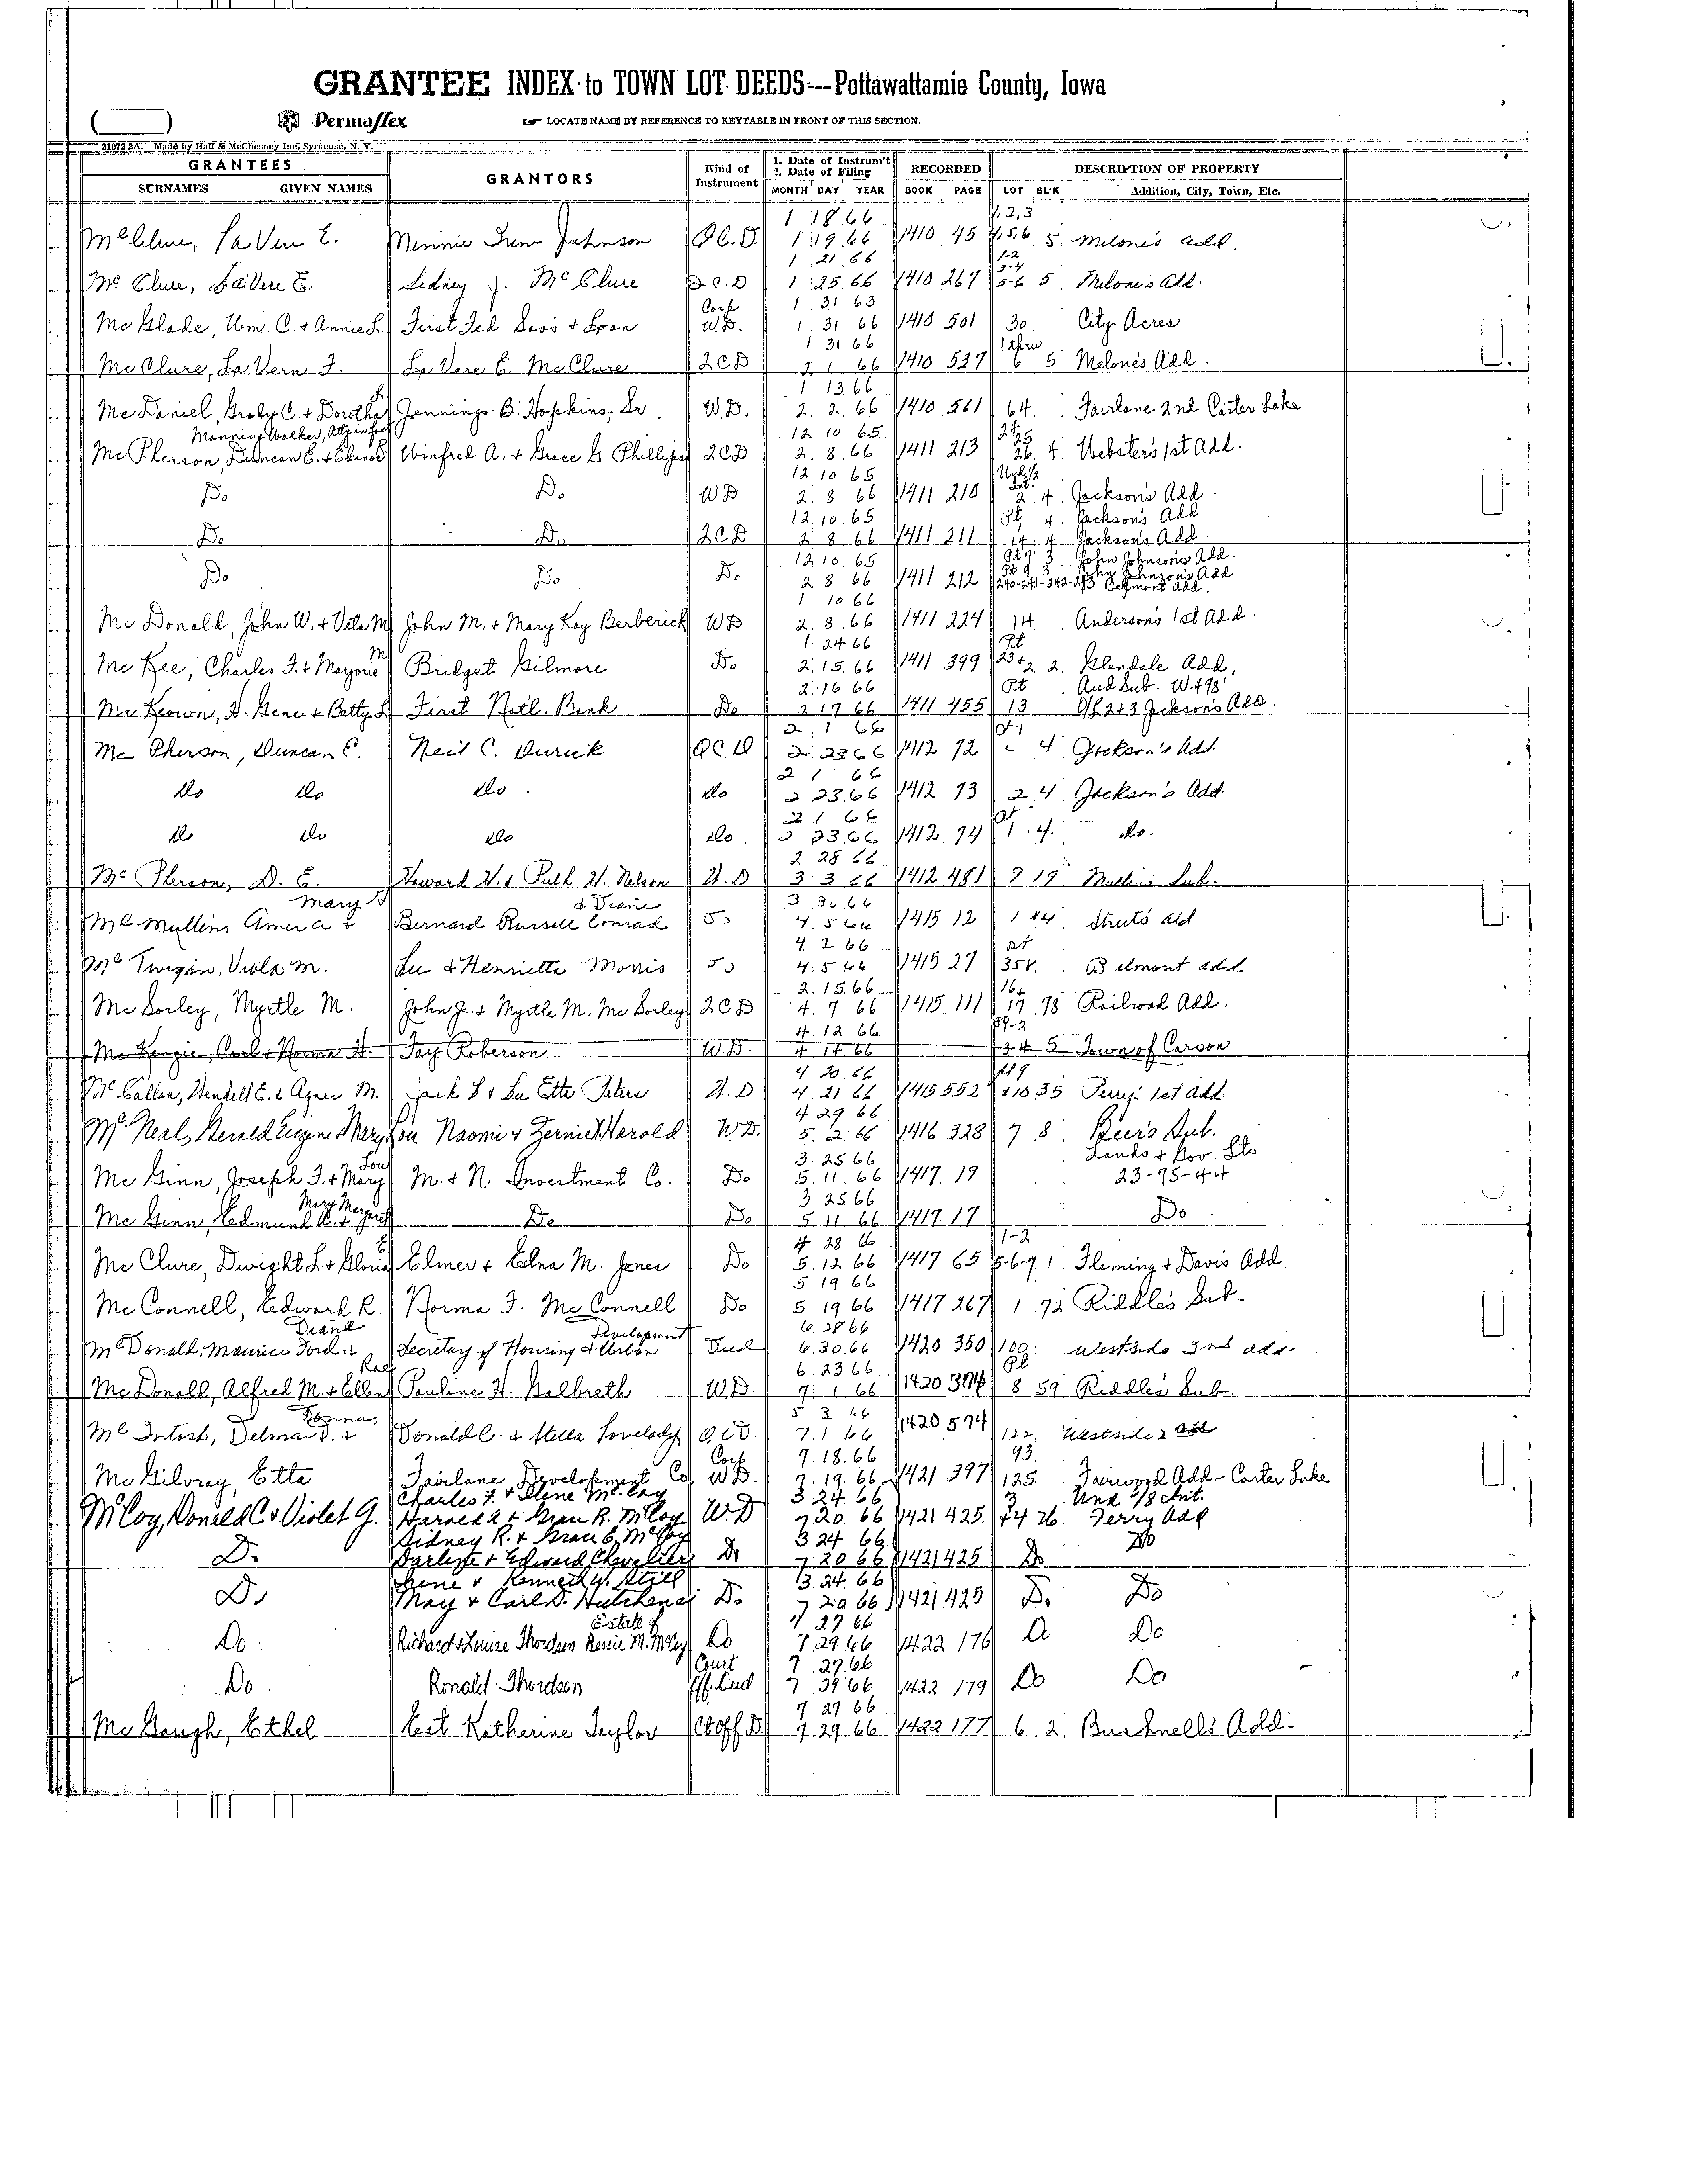 GRANTEE INDEX to TOWN LOT DEEDS---Pottawattamie County, Iowa
Permaflex ☞ LOCATE NAME BY REFERENCE TO KEYTABLE IN FRONT OF THIS SECTION.
21072-2A. Made by Hall & McChesney Inc, Syracuse, N. Y.
GRANTEES GRANTORS Kind of Instrument 1. Date of Instrum't 2. Date of Filing RECORDED DESCRIPTION OF PROPERTY
SURNAMES GIVEN NAMES MONTH DAY YEAR BOOK PAGE LOT BL'K Addition, City, Town, Etc.
1 18 66 1,2,3
McClure, LaVere E. Minnie Irene Johnson Q.C.D. 1 19 66 1410 45 4,5,6 5 Melone's Add.
1 21 66 1-2 3-4
Mc Clure, LaVere E. Sidney J. McClure Q.C.D 1 25 66 1410 267 5-6 5 Melone's Add.
Corp 1 31 63
Mc Glade, Wm. C. + Annie L. First Fed Savs + Loan W.D. 1 31 66 1410 501 30 City Acres
1 31 66 1 thru
Mc Clure, La Verne F. La Vere E. McClure QCD 2 1 66 1410 537 6 5 Melone's Add.
1 13 66
Mc Daniel, Grady C. + Dorotha Jennings B. Hopkins, Sr. W.D. 2 2 66 1410 561 64 Fairlane 2nd Carter Lake
Manning Walker, Atty in fact 12 10 65 24 25
Mc Pherson, Duncan E. + Elenor Winfred A. + Grace G. Phillips QCD 2 8 66 1411 213 26 4 Webster's 1st Add.
12 10 65 Und 1/2 Int.
Do Do WD 2 8 66 1411 210 2 4 Jackson's Add
12 10 65 Pt 4 Jackson's Add
Do Do QCD 2 8 66 1411 211 14 4 Jackson's Add
12 10 65 Pt 9 3 John Johnson's Add.
Do Do Do 2 8 66 1411 212 Pt 9 3 John Johnson's Add
1 10 66 240-241-242-243 Belmont Add.
Mc Donald, John W. + Veta M John M. + Mary Kay Berberick WD 2 8 66 1411 224 14 Anderson's 1st Add.
M 1 24 66 Pt
Mc Kee, Charles F. + Marjorie Bridget Gilmore Do 2 15 66 1411 399 23+2 2 Glendale Add.
2 16 66 Pt Aud Sub. W 498'
Mc Keown, H. Gene + Betty L First Natl. Bank Do 2 17 66 1411 455 13 Of 2+3 Jackson's Add.
2 1 66
Mc Pherson, Duncan E. Neil C. Durick QC.D 2 23 66 1412 72 4 Jackson's Add
2 1 66
do do do do 2 23 66 1412 73 2 4 Jackson's Add
2 1 66 Pt
do do do do 2 23 66 1412 74 1 4 do.
2 28 66
Mc Pherson, D. E. Howard W. + Ruth H. Nelson W.D 3 3 66 1412 481 9 19 Mullin's Sub.
Mary & Diane 3 30 66
McMullin, Amer a & Bernard Russell Conrad 4 5 66 1415 12 1 44 Struts add
4 2 66 pt
McTwigan, Viola M. Lee & Henrietta Morris 4 5 66 1415 27 358 Belmont add
2 15 66 16+
Mc Sorley, Myrtle M. John J. + Myrtle M. Mc Sorley QCD 4 7 66 1415 111 17 78 Railroad Add.
4 12 66
Mc Kenzie, Carl + Norma H. Jay Roberson W.D. 4 14 66 3-4 5 Town of Carson
4 20 66 pt 9
Mc Callan, Wendell E. & Agnes M. Jack L & Lu Etta Peters W.D 4 21 66 1415 552 & 10 35 Perry 1st Add
4 29 66
McNeal, Gerald Eugene & Mary Lou Naomi & Zernick Harold W.D. 5 2 66 1416 328 7 8 Beer's Sub.
Lou 3 25 66 Lands + Gov. Lts
Mc Ginn, Joseph F. + Mary M. + N. Investment Co. Do 5 11 66 1417 19 23-75-44
Mary Margaret 3 25 66
Mc Ginn, Edmund R. + Do Do 5 11 66 1417 17 Do
E 4 28 66 1-2
Mc Clure, Dwight L. + Gloria Elmer + Edna M. Jones Do 5 12 66 1417 65 5-6-7 1 Fleming + Davis Add
5 19 66
Mc Connell, Edward R. Norma F. McConnell Do 5 19 66 1417 267 1 72 Riddle's Sub.
Diane Development 6 28 66
McDonald, Maurice Ford & Secretary of Housing & Urban Deed 6 30 66 1420 350 100 Westside 2nd add.
Rae 6 23 66 Pt
Mc Donald, Alfred M. + Ellen Pauline H. Galbreth W.D. 7 1 66 1420 374 8 59 Riddle's Sub
Donna 5 3 66
McIntosh, Delmar D. + Donald C. & Stella Lovelady Q.C.D. 7 1 66 1420 574 122 Westside 2 add
Corp 7 18 66 93
Mc Gilvray, Etta Fairlane Development Co. W.D. 7 19 66 1421 397 125 Fairwood Add - Carter Lake
Charles F. + Ilene McCoy 3 24 66 3 Und 5/8 Int.
McCoy, Donald C + Violet G. Harold A + Gran R. McCoy WD 7 20 66 1421 425 74 26 Ferry Add
Sidney R. + Grace E. McCoy 3 24 66
Do Darlene + Edward Chevalier Do 7 20 66 1421 425 Do Do
Irene + Kenneth W. Still 3 24 66
Do May + Carl D. Hutchens Do 7 20 66 1421 425 Do Do
Estate of 7 27 66
Do Richard & Louise Thordsen Bessie M. McCoy Do 7 29 66 1422 176 Do Do
Court 7 27 66
Do Ronald Thordson Off. Deed 7 29 66 1422 179 Do Do
7 27 66
Mc Gaugh, Ethel Est Katherine Taylor Ct Off D 7 29 66 1422 177 6 2 Bushnell's Add.